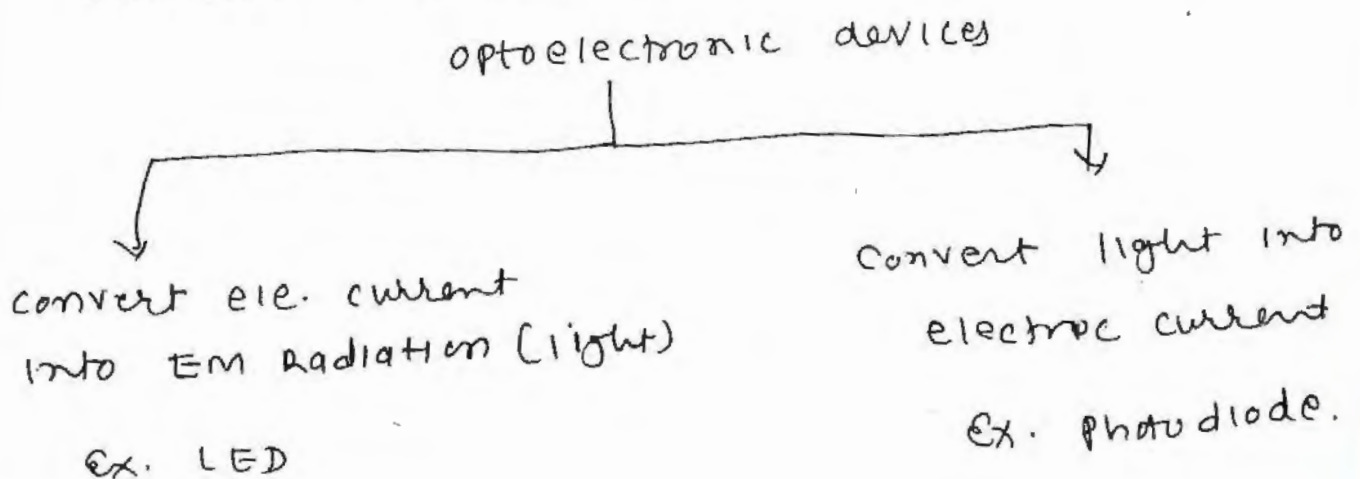 optoelectronic devices
convert ele. current
into EM Radiation (light)
Ex. LED
Convert light into
electric current
Ex. Photodiode.